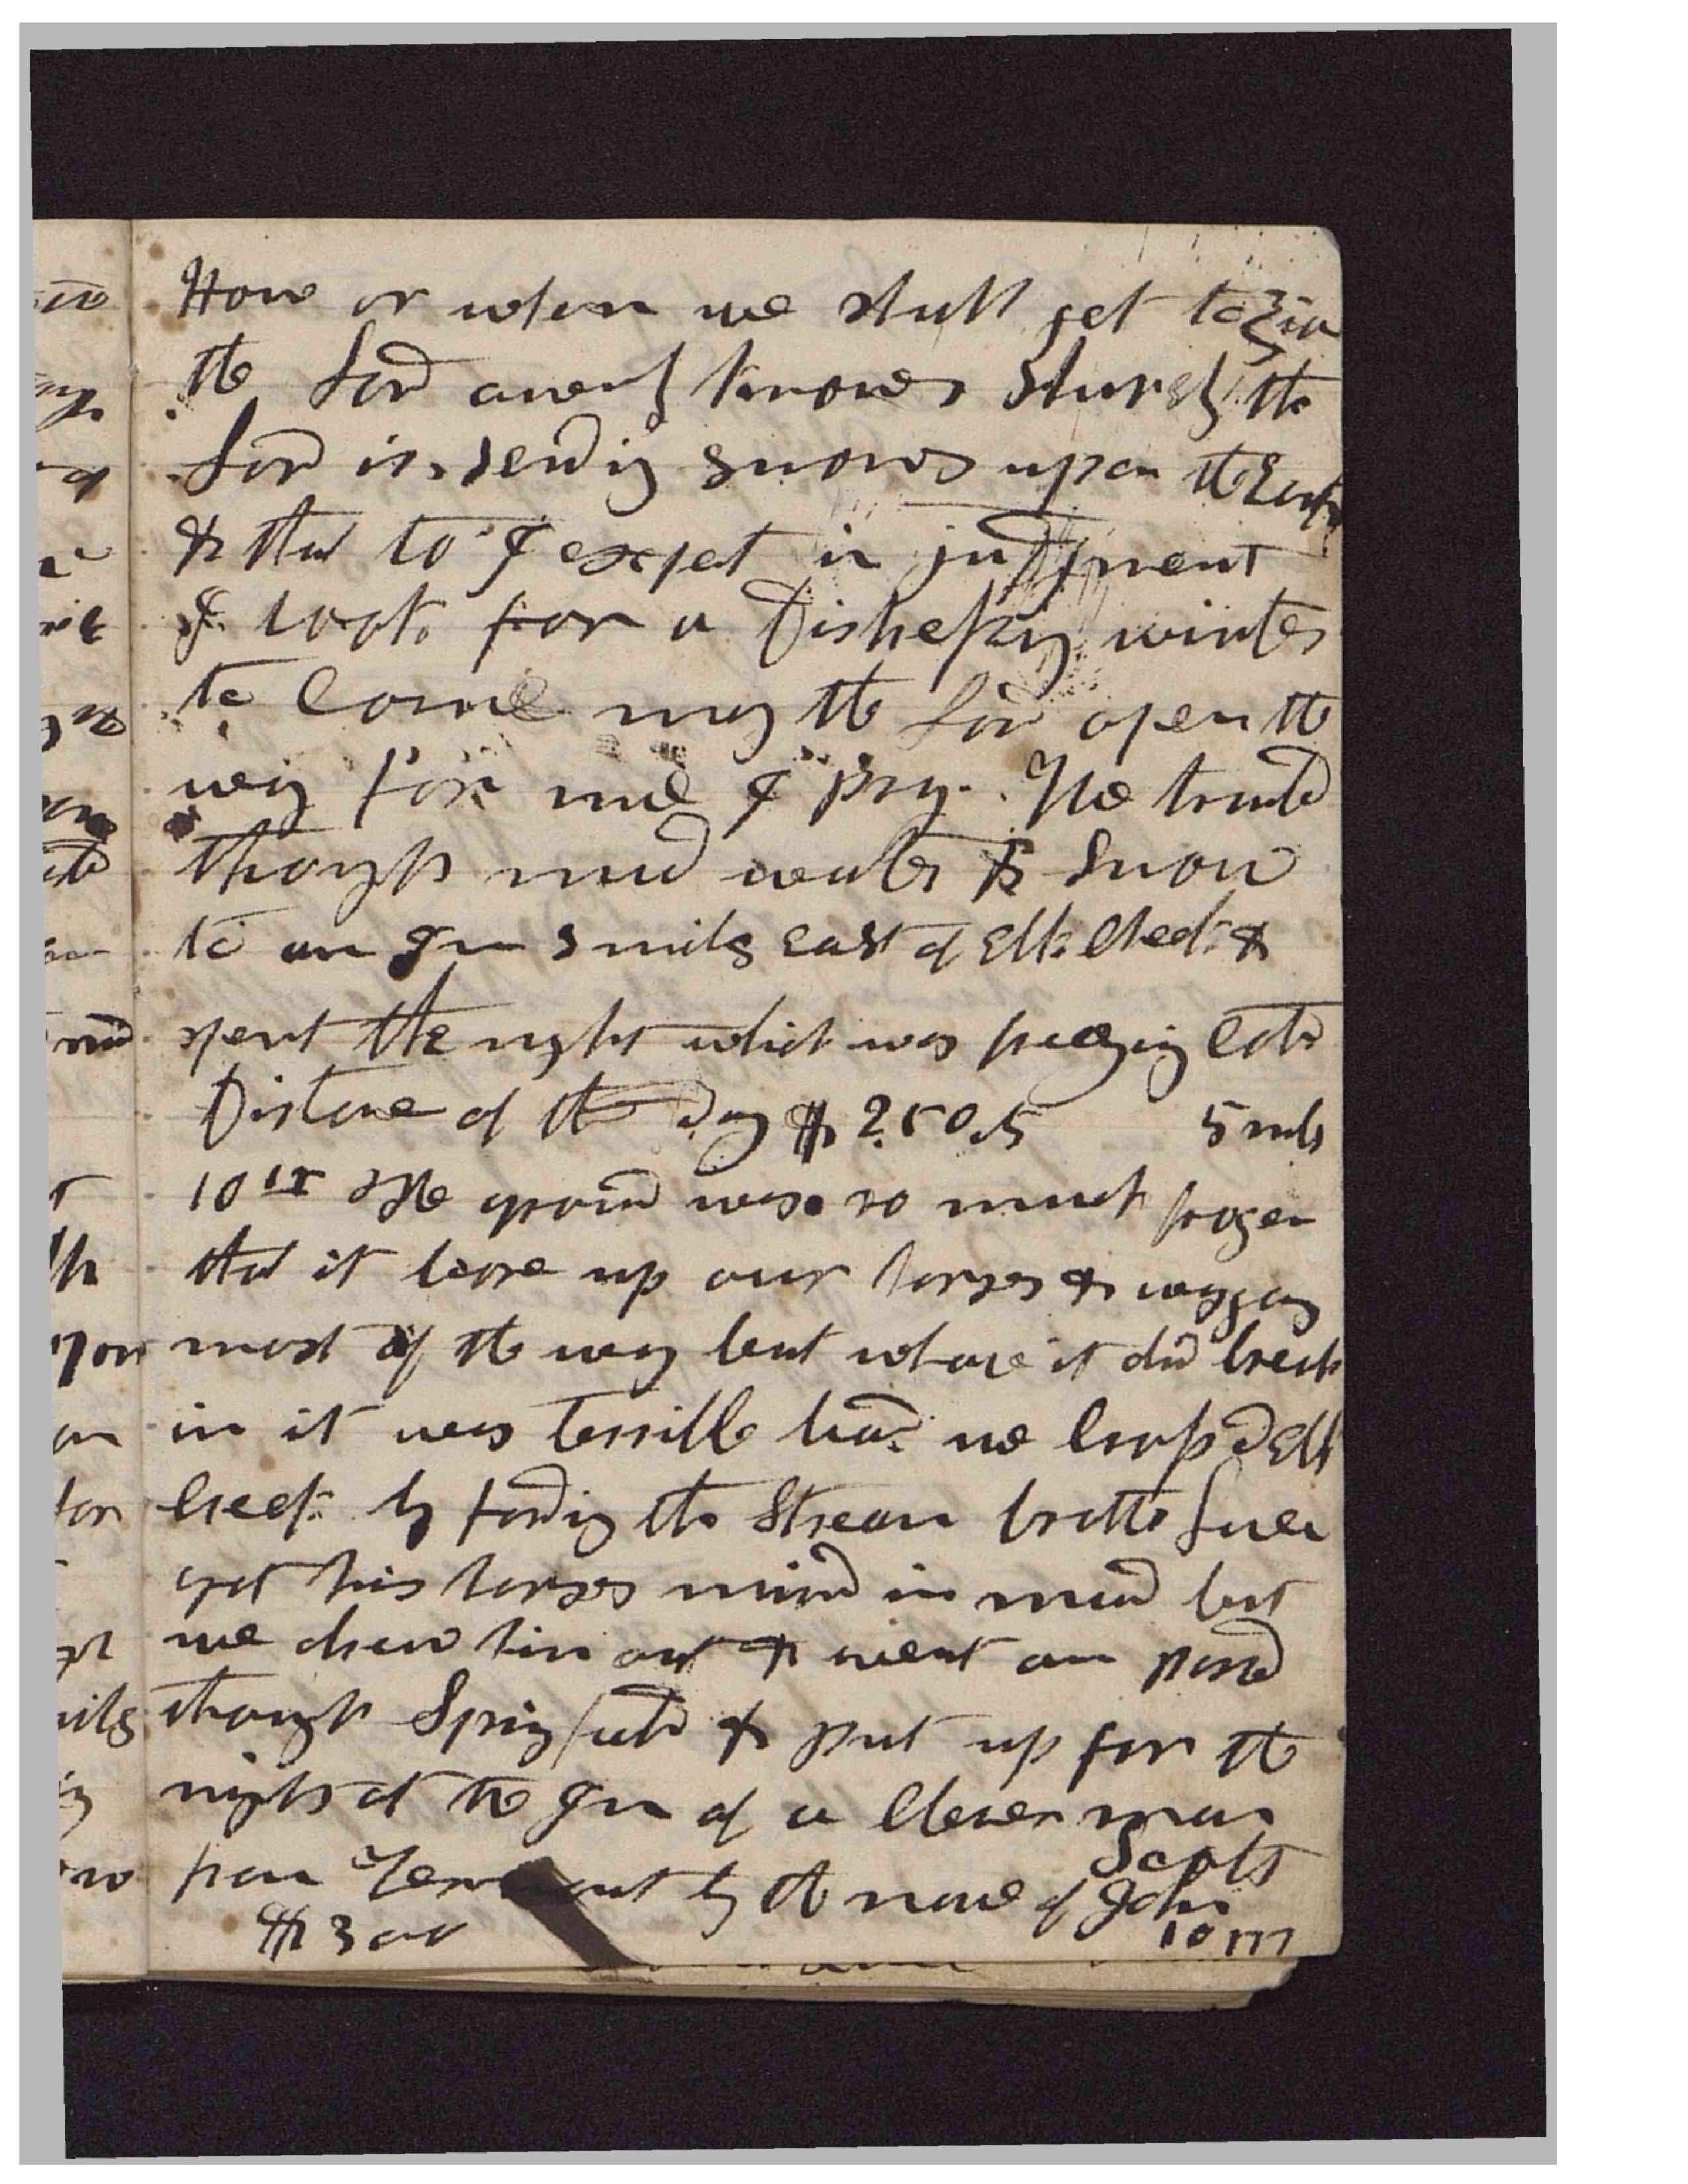 How or when we shall get to Zion
the Lord ownly knows Shurely the
Lord is sending snows upon the Earth
& that to I expect in judgment
I look for a Distressing winter
to come may the Lord open the
way for me I pray. We traveled
through mud water & Snow
to an Inn 3 miles east of Elk Creek &
spent the night which was freezing cold
Distance of the Day $2.50.5 5 mls
10th The ground was so much frozen
that it bore up our horses & waggons
most of the way but whare it did break
in it was terrible bad. we crossed Elk
Creek by fording the Stream brother
got his horses mired in mud but
we drew him out & went on passed
through Springfield & put up for the
night at the Inn of a Clever man
from Vermont by the name of John
Scott
$3.00 10 m